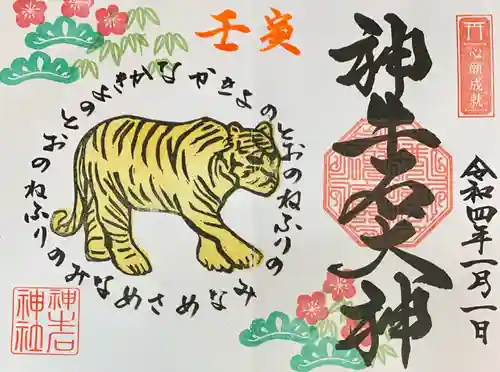 壬寅
心願成就
神牛石大神
令和四年一月一日
なかきよのとおのねふりのみなめさめなみのりふねのおとのよきか